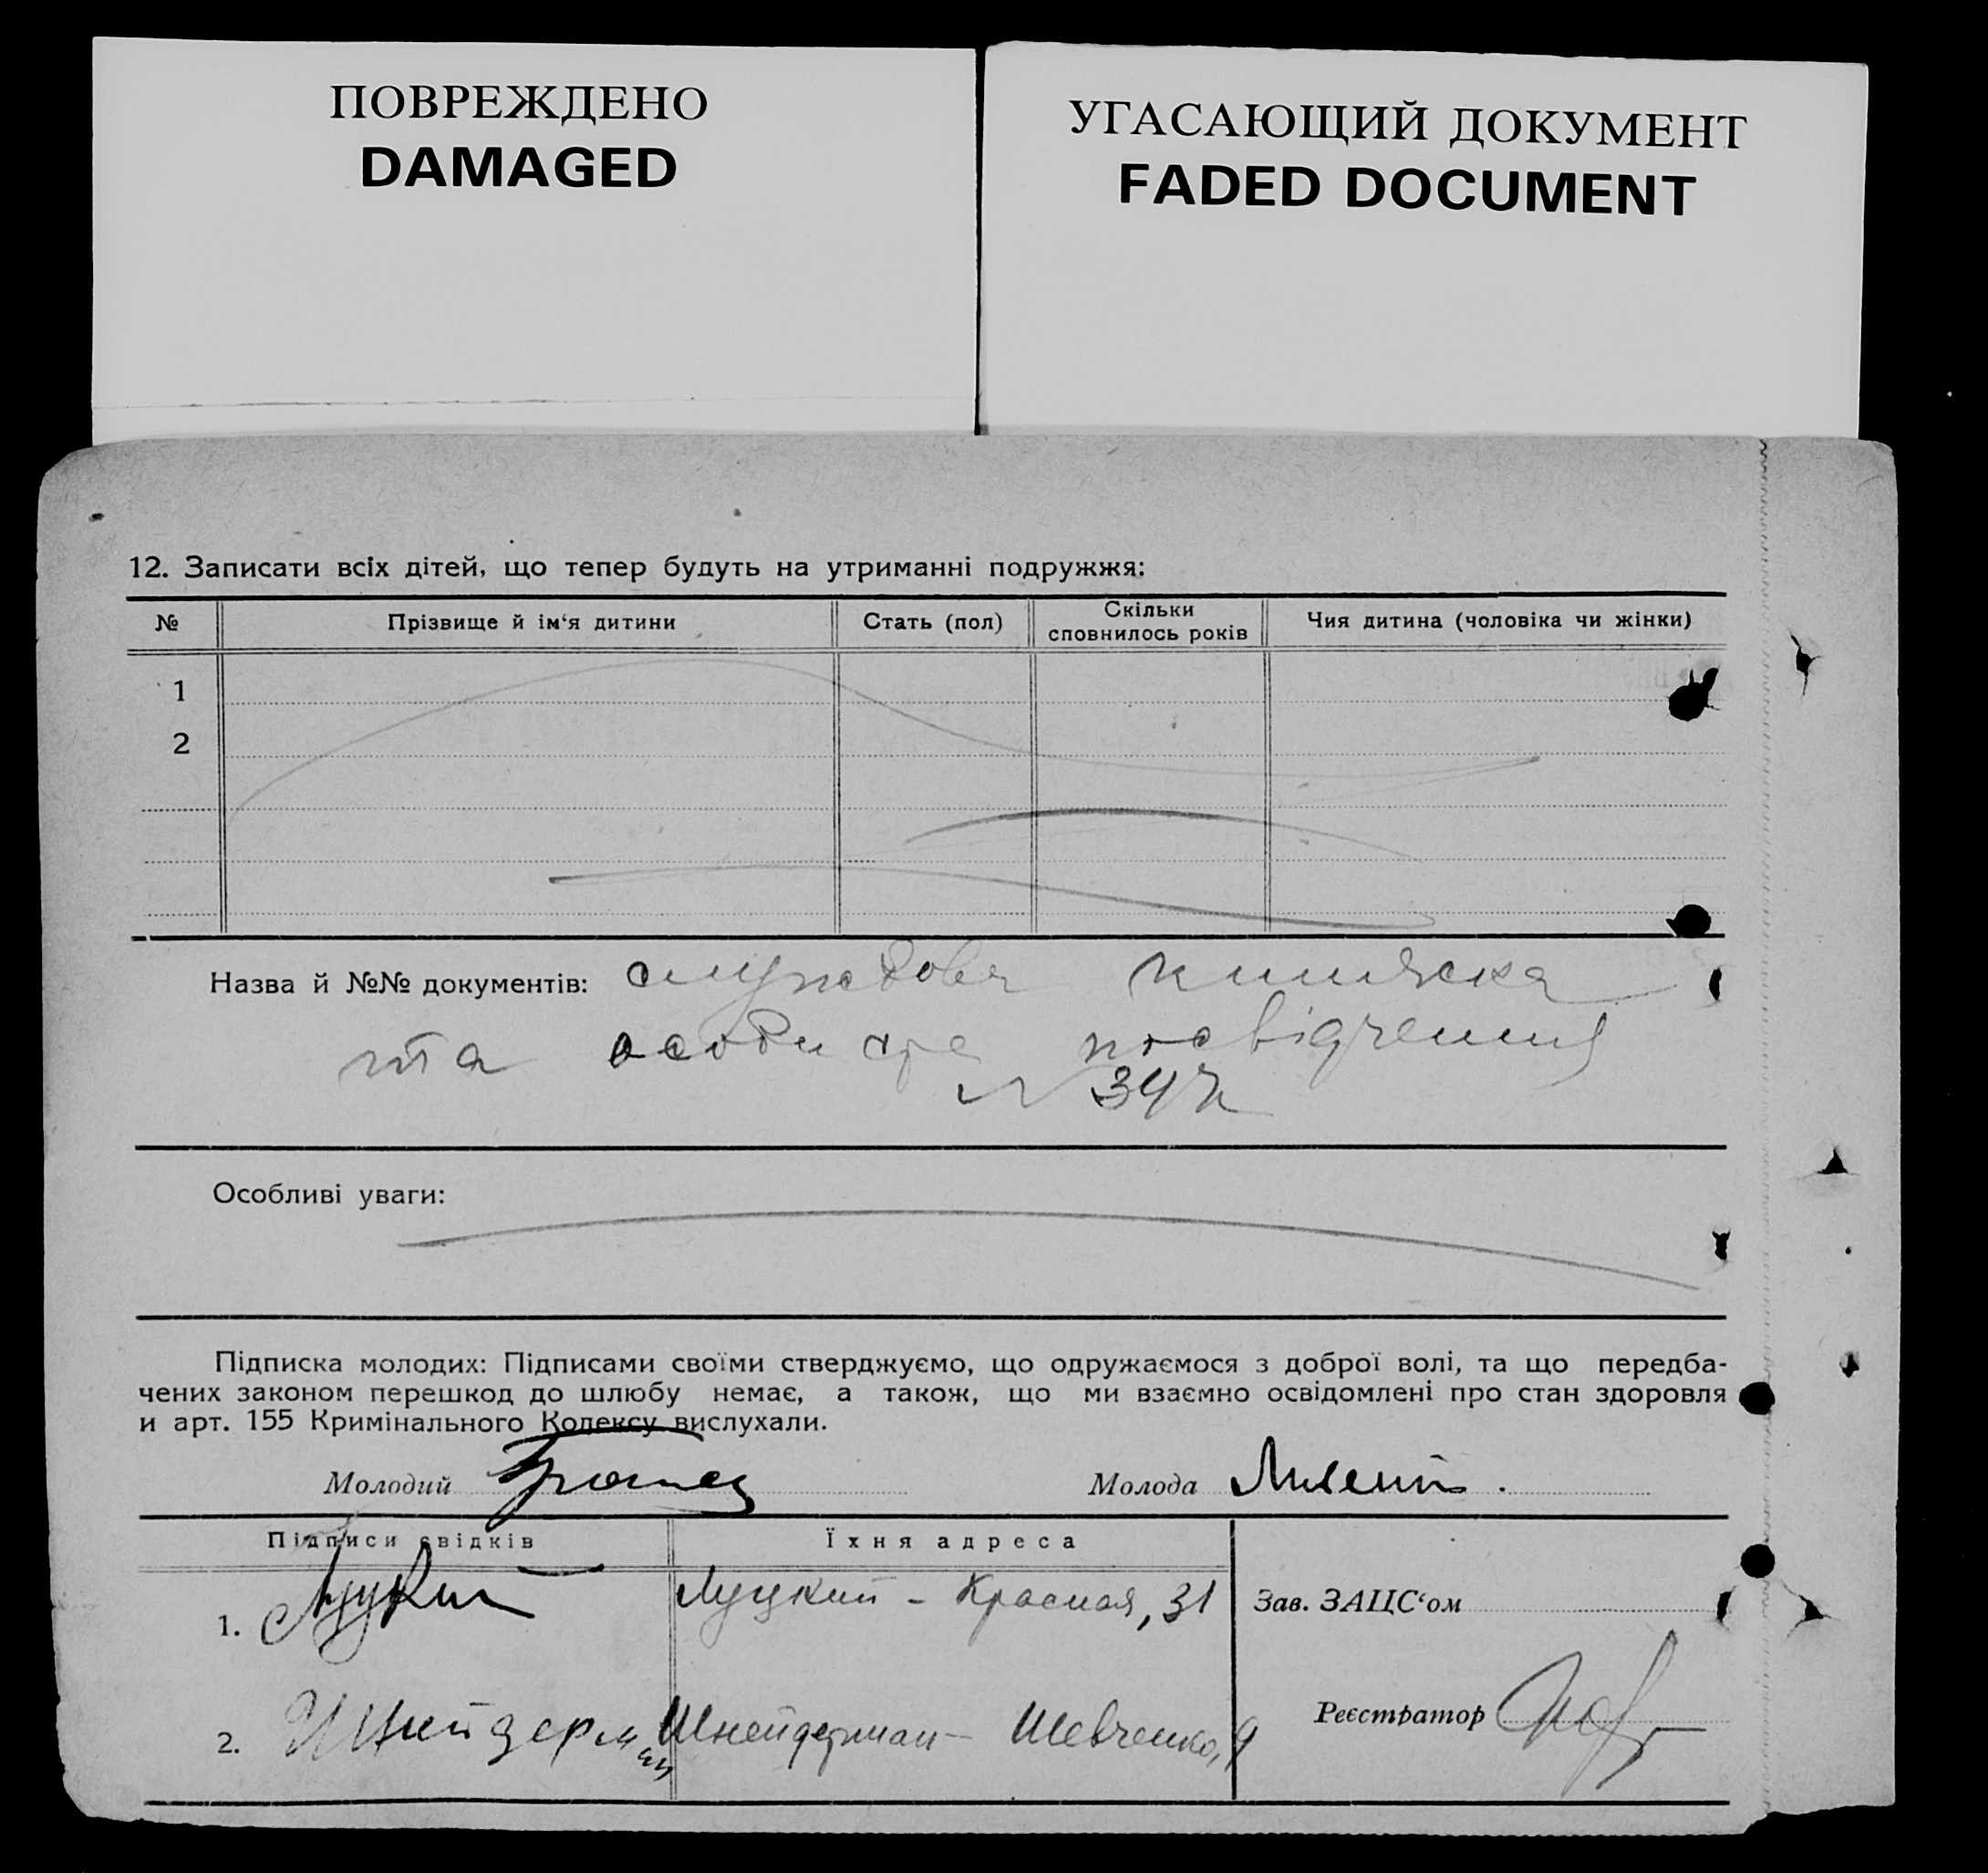 ПОВРЕЖДЕНО
DAMAGED
УГАСАЮЩИЙ ДОКУМЕНТ
FADED DOCUMENT
12. Записати всіх дітей, що тепер будуть на утриманні подружжя:
№ Прізвище й ім‘я дитини Стать (пол) Скільки сповнилось років Чия дитина (чоловіка чи жінки)
1
2
Назва й №№ документів: службова книжка
та особисте посвідчення
№ 347
Особливі уваги:
Підписка молодих: Підписами своїми стверджуємо, що одружаємося з доброї волі, та що передба-
чених законом перешкод до шлюбу немає, а також, що ми взаємно освідомлені про стан здоровля
и арт. 155 Кримінального Кодексу вислухали.
Молодий Молода
Підписи свідків Їхня адреса
1. Луцкий Луцкий - Красная, 31 Зав. ЗАЦС‘ом
2. Шнейдерман Шнейдерман - Шевченко, 9 Реєстратор